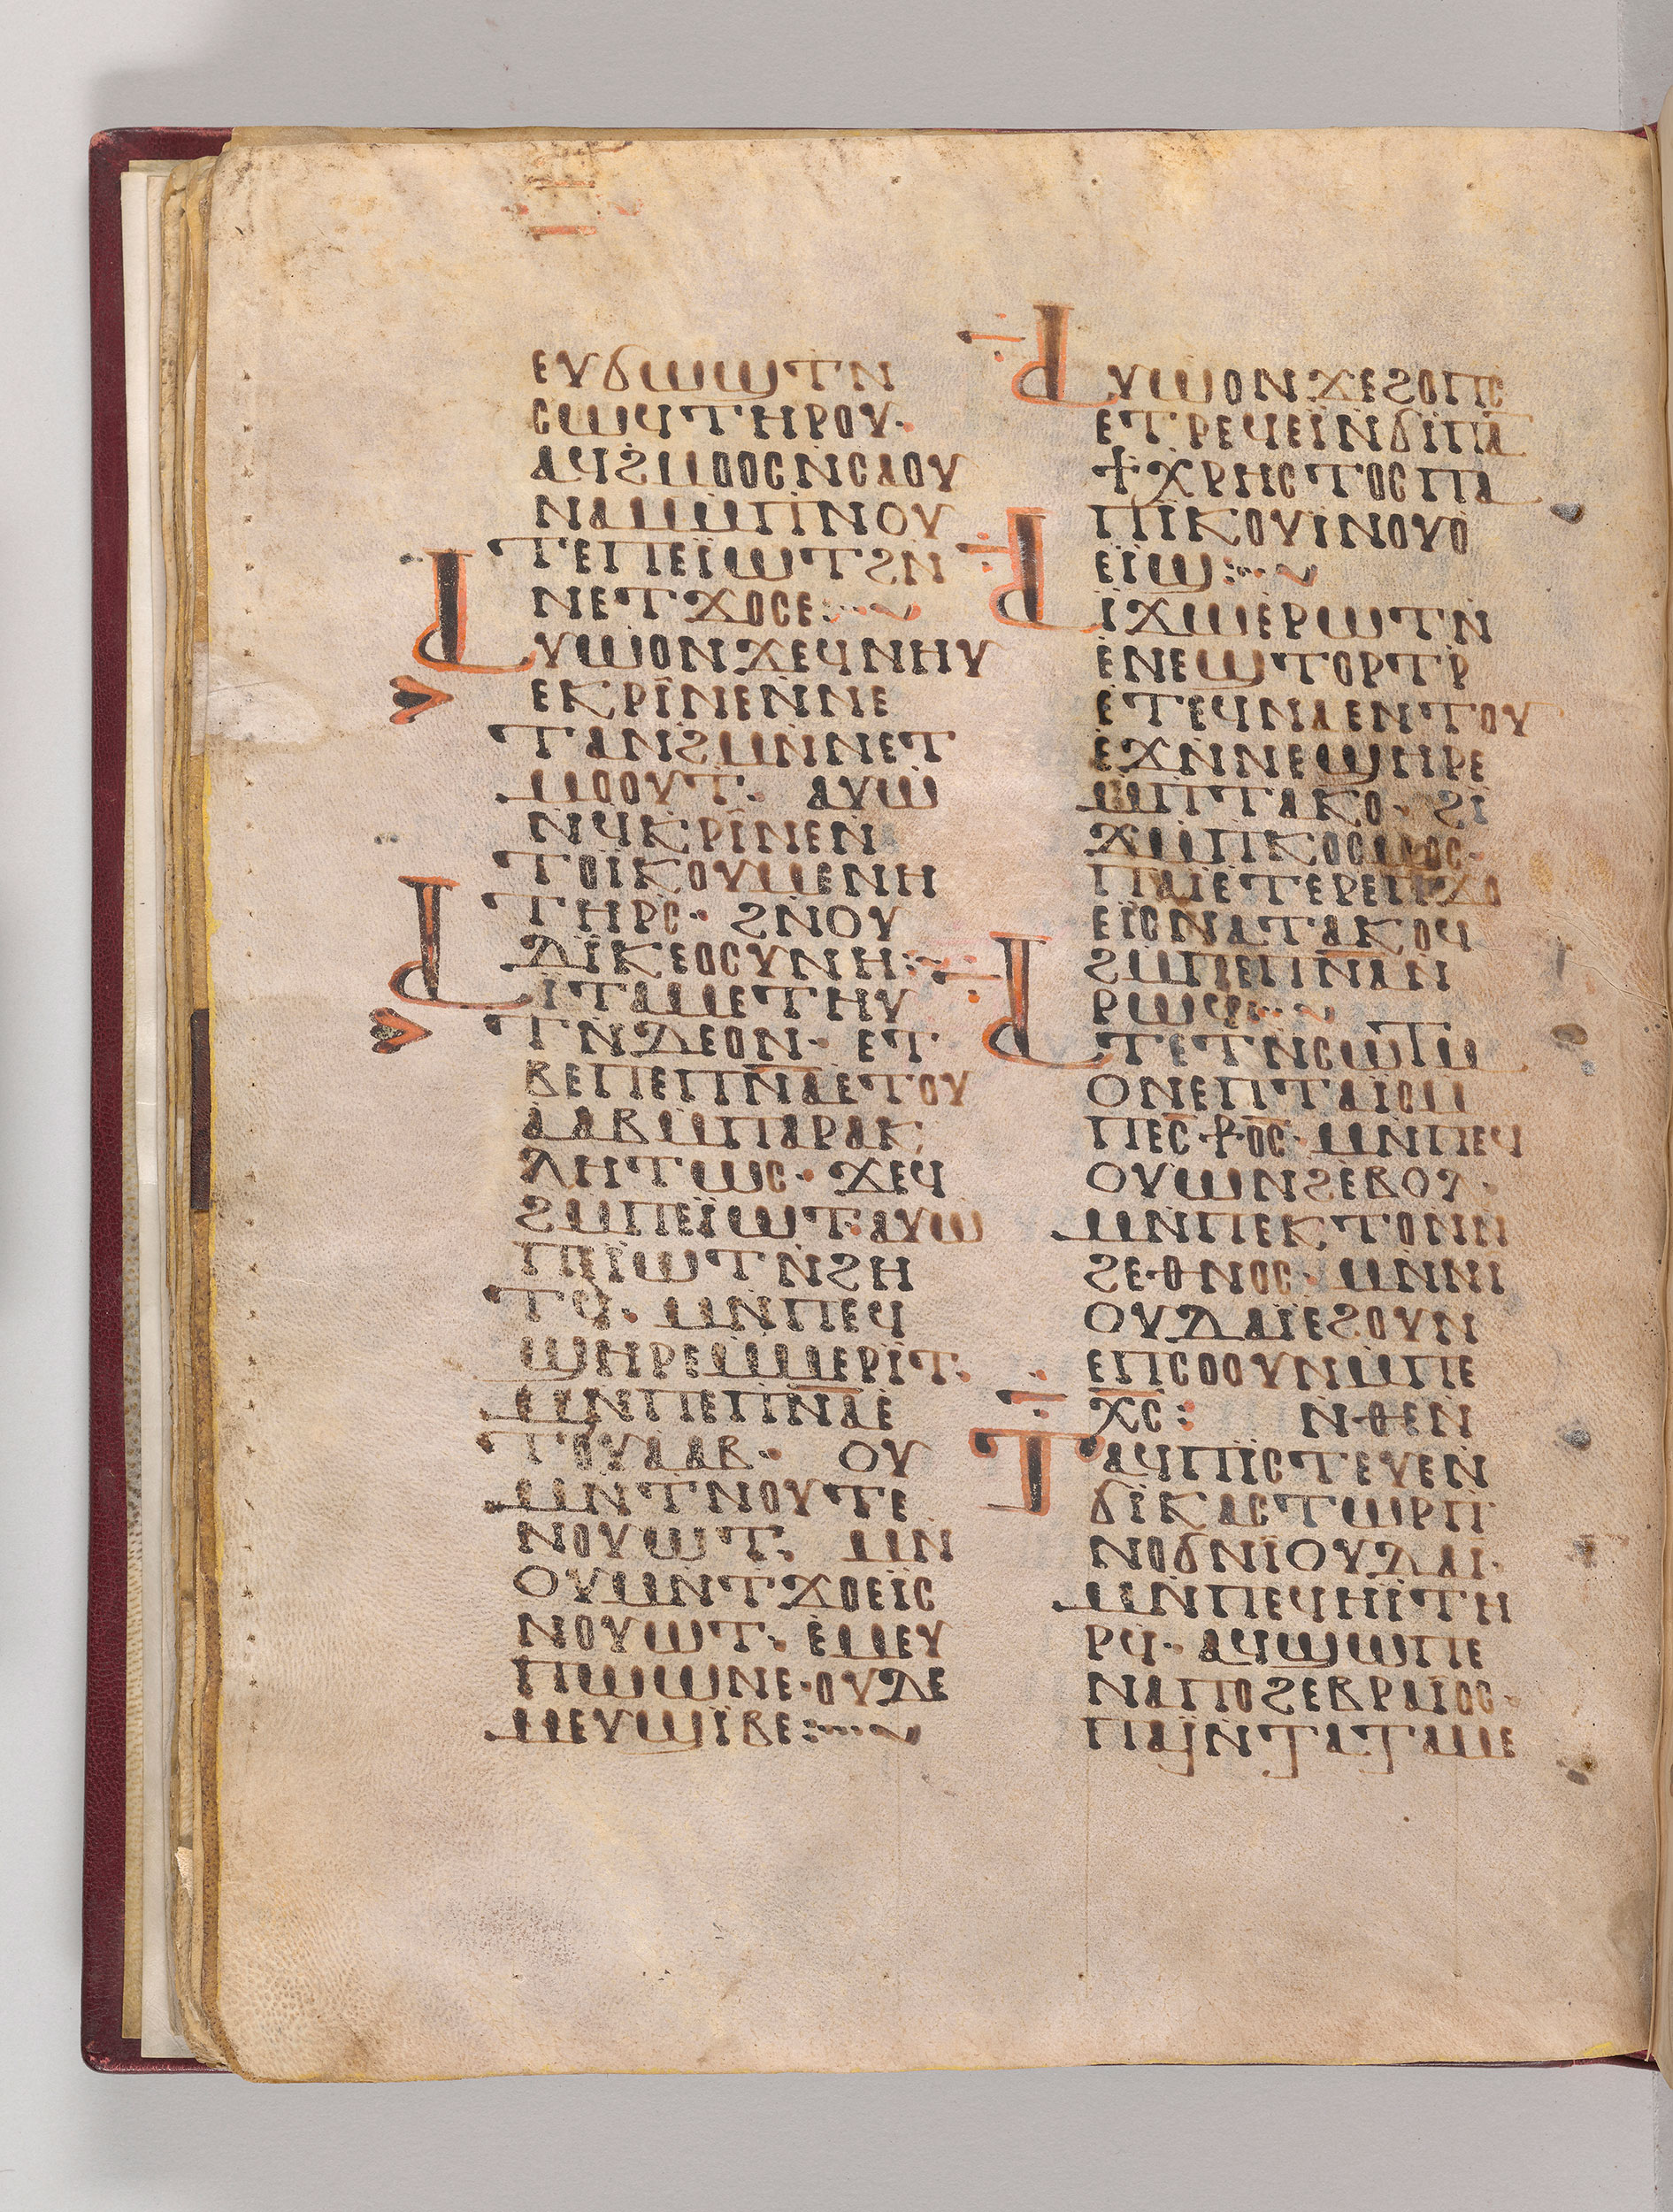 ⲉⲩϭⲱϣⲧⲛ
ⲥⲱϥⲧⲏⲣⲟⲩ·
ⲁϥϩⲙⲟⲟⲥⲛⲥⲁⲟⲩ
ⲛⲁⲙⲙⲡⲛⲟⲩ
ⲧⲉⲡⲉⲓ̈ⲱⲧϩⲛ
ⲛⲉⲧϫⲟⲥⲉ:
ⲁⲩⲱⲟⲛϫⲉϥⲛⲏⲩ
ⲉⲕⲣⲓ̈ⲛⲉⲛⲛⲉ
ⲧⲁⲛϩⲙⲛⲛⲉⲧ
ⲙⲟⲟⲩⲧ· ⲁⲩⲱ
ⲛϥⲕⲣⲓ̈ⲛⲉⲛ
ⲧⲟⲓ̈ⲕⲟⲩⲙⲉⲛⲏ
ⲧⲏⲣⲥ· ϩⲛⲟⲩ
ⲇⲓ̈ⲕⲉⲟⲥⲩⲛⲏ:
ⲁⲓ̈ⲧⲁⲙⲉⲧⲏⲩ
ⲧⲛⲇⲉⲟⲛ· ⲉⲧ
ⲃⲉⲡⲉⲡⲛ̅ⲁ̅ⲉⲧⲟⲩ
ⲁⲁⲃⲙⲡⲁⲣⲁⲕ
ⲗⲏⲧⲱⲥ· ϫⲉϥ
ϩⲙⲡⲉⲓ̈ⲱⲧ·ⲁⲩⲱ
ⲡⲓ̈ⲱⲧⲛϩⲏ
ⲧϥ· ⲙⲛⲡⲉϥ
ϣⲏⲣⲉⲙⲙⲉⲣⲓⲧ·
ⲙⲛⲡⲉⲡⲛ̅ⲁ̅ⲉ
ⲧⲟⲩⲁⲁⲃ· ⲟⲩ
ⲙⲛⲧⲛⲟⲩⲧⲉ
ⲛⲟⲩⲱⲧ· ⲙⲛ
ⲟⲩⲙⲛⲧϫⲟⲉⲓ̈ⲥ
ⲛⲟⲩⲱⲧ· ⲉⲙⲉⲩ
ⲡⲱⲱⲛⲉ·ⲟⲩⲇⲉ
ⲙⲉⲩϣⲓ̈ⲃⲉ:
ⲁⲩⲱⲟⲛϫⲉϩⲟⲡⲥ
ⲉⲧⲣⲉϥⲉⲓ̈ⲛϭⲓⲡⲁ
ϯⲭⲣⲏⲥⲧⲟⲥⲡⲁ
ⲡⲓⲕⲟⲩⲓ̈ⲛⲟⲩⲟ
ⲉⲓ̈ϣ:
ⲁⲓ̈ϫⲱⲉⲣⲱⲧⲛ
ⲉⲛⲉϣⲧⲟⲣⲧⲣ
ⲉⲧⲉϥⲛⲁⲉⲛⲧⲟⲩ
ⲉϫⲛⲛⲉϣⲏⲣⲉ
ⲙⲡⲧⲁⲕⲟ· ϩⲓ
ϫⲙⲡⲕⲟⲥⲙⲟⲥ·
ⲡⲁⲓ̈ⲉⲧⲉⲣⲉⲡϫⲟ
ⲉⲓ̈ⲥⲛⲁⲧⲁⲕⲟϥ
ϩⲙⲡⲉⲡⲛ̅ⲁ̅ⲛ
ⲣⲱϥ:
ⲁⲧⲉⲧⲛⲥⲱⲧⲙ
ⲟⲛⲉⲡⲧⲁⲓⲟⲙ
ⲡⲉⲥ⳨ⲟⲥ· ⲙⲛⲡⲉϥ
ⲟⲩⲱⲛϩⲉⲃⲟⲗ·
ⲙⲛⲡⲉⲕⲧⲟⲛⲛ
ϩⲉⲑⲛⲟⲥ· ⲙⲛⲛⲓ
ⲟⲩⲇⲁⲓ̈ⲉϩⲟⲩⲛ
ⲉⲡⲥⲟⲟⲩⲛⲙⲡⲉ
ⲭ̅ⲥ̅: ⲛⲑⲉⲛ
ⲧⲁϥⲡⲓ̈ⲥⲧⲉⲩⲉⲛ
ϭⲓ̈ⲕⲁⲥⲧⲱⲣⲡ
ⲛⲟϭⲛⲓ̈ⲟⲩⲇⲁⲓ·
ⲙⲛⲡⲉϥⲏⲓ̈ⲧⲏ
ⲣϥ· ⲁϥϣⲱⲡⲉ
ⲛⲁⲡⲟϩⲉⲃⲣⲁⲓ̈ⲟⲥ·
ⲡⲁⲓ̈ⲛⲧⲁⲧⲁⲙⲉ